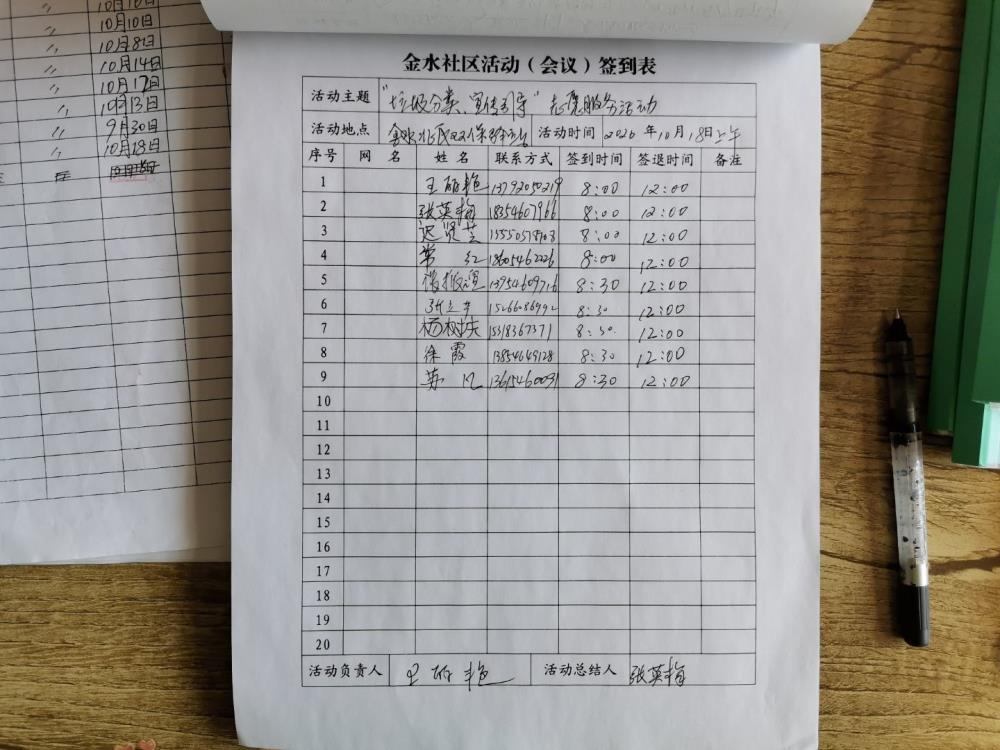 10月10日
〃 10月10日
〃 10月8日
〃 10月14日
〃 10月12日
〃 10月13日
〃 9月30日
〃 10月18日
金水社区活动（会议）签到表
活动主题 "垃圾分类、宣传引导"志愿服务活动
活动地点 活动时间 2020年10月18日上午
序号 网 名 姓 名 联系方式 签到时间 签退时间 备注
1 王丽艳 13792050219 8:00 12:00
2 张英梅 18354607966 8:00 12:00
3 迟贤芸 8:00 12:00
4 常 红 18605462226 8:00 12:00
5 13954609716 8:30 12:00
6 15266086992 8:30 12:00
7 杨树庆 15318367371 8:30 12:00
8 徐 霞 13854649128 8:30 12:00
9 苏 凡 13615460091 8:30 12:00
10
11
12
13
14
15
16
17
18
19
20
活动负责人 王丽艳 活动总结人 张英梅